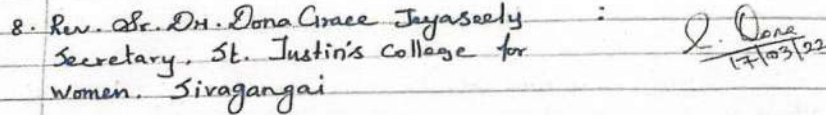 8. Rev. Sr. Dr. Dona Grace Jeyaseely :
Secretary, St. Justin's College for
women. Sivagangai
Dona
17/03/22